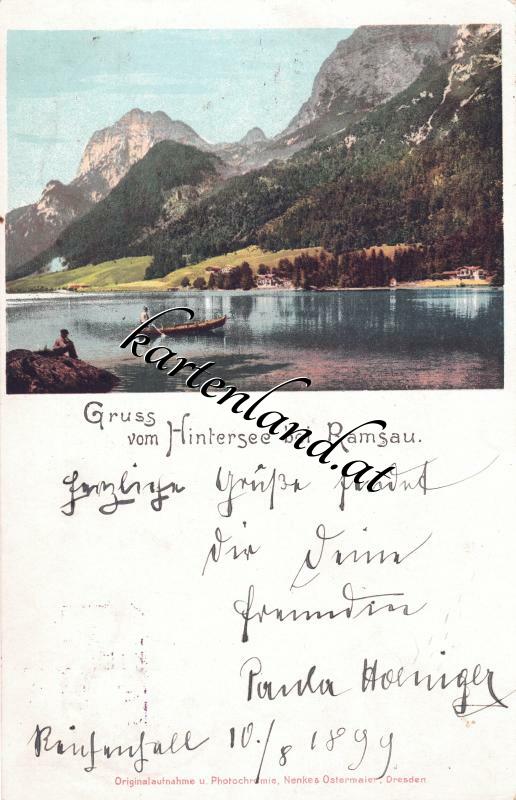 Gruss
vom Hintersee b. Ramsau.
kartenland.at
Herzliche Grüße sendet
dir Deine
Freundin
Paula Hoeniger
Reichenhall 10./8 1899
Originalaufnahme u. Photochromie, Nenke & Ostermaier, Dresden